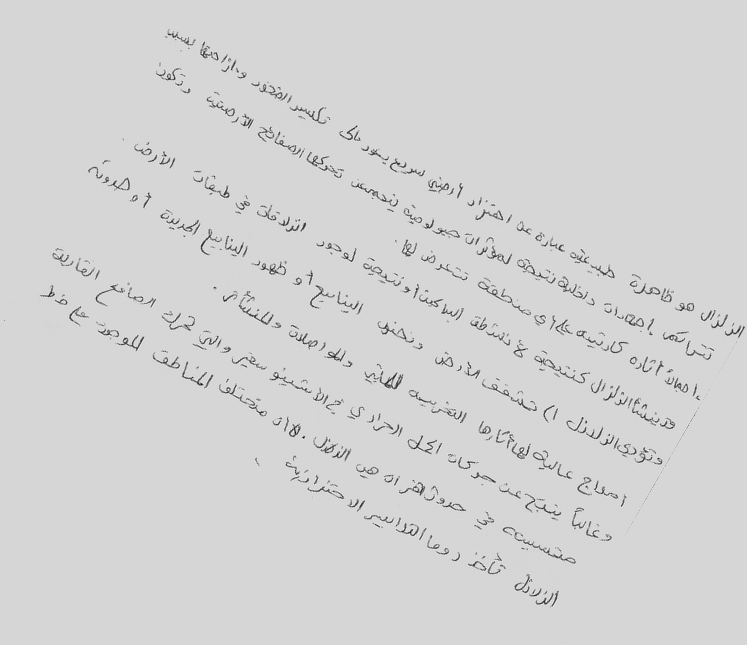 الزلزال هو ظاهرة طبيعية عبارة عن اهتزاز أرضي سريع يعود إلى تكسر الصخور وإزاحتها بسبب
تتراكم إجهادات داخلية نتيجة لمؤثرات جيولوجية ينجم عن تحركها الصفائح الأرضية وتكون
إجمالاً آثاره كارثية على أي منطقة تتعرض لها.
وقد ينشأ الزلزال كنتيجة لأنشطة البراكين أو نتيجة لوجود انزلاقات في طبقات الأرض.
وتؤدي الزلازل إلى تشقق الأرض ونضوب الينابيع أو ظهور الينابيع الجديدة أو حدوث
أمواج عالية لها آثارها التخريبية للمباني والمواصلات والمنشآت.
وغالباً ينتج عن حركات الحمل الحراري في الاستينوسفير والتي تحرك الصفائح القارية
متسببة في حدوث هزات هي الزلازل. مختلف المناطق الموجود على خط
الزلازل تأخذ دوما التدابير الاحترازية